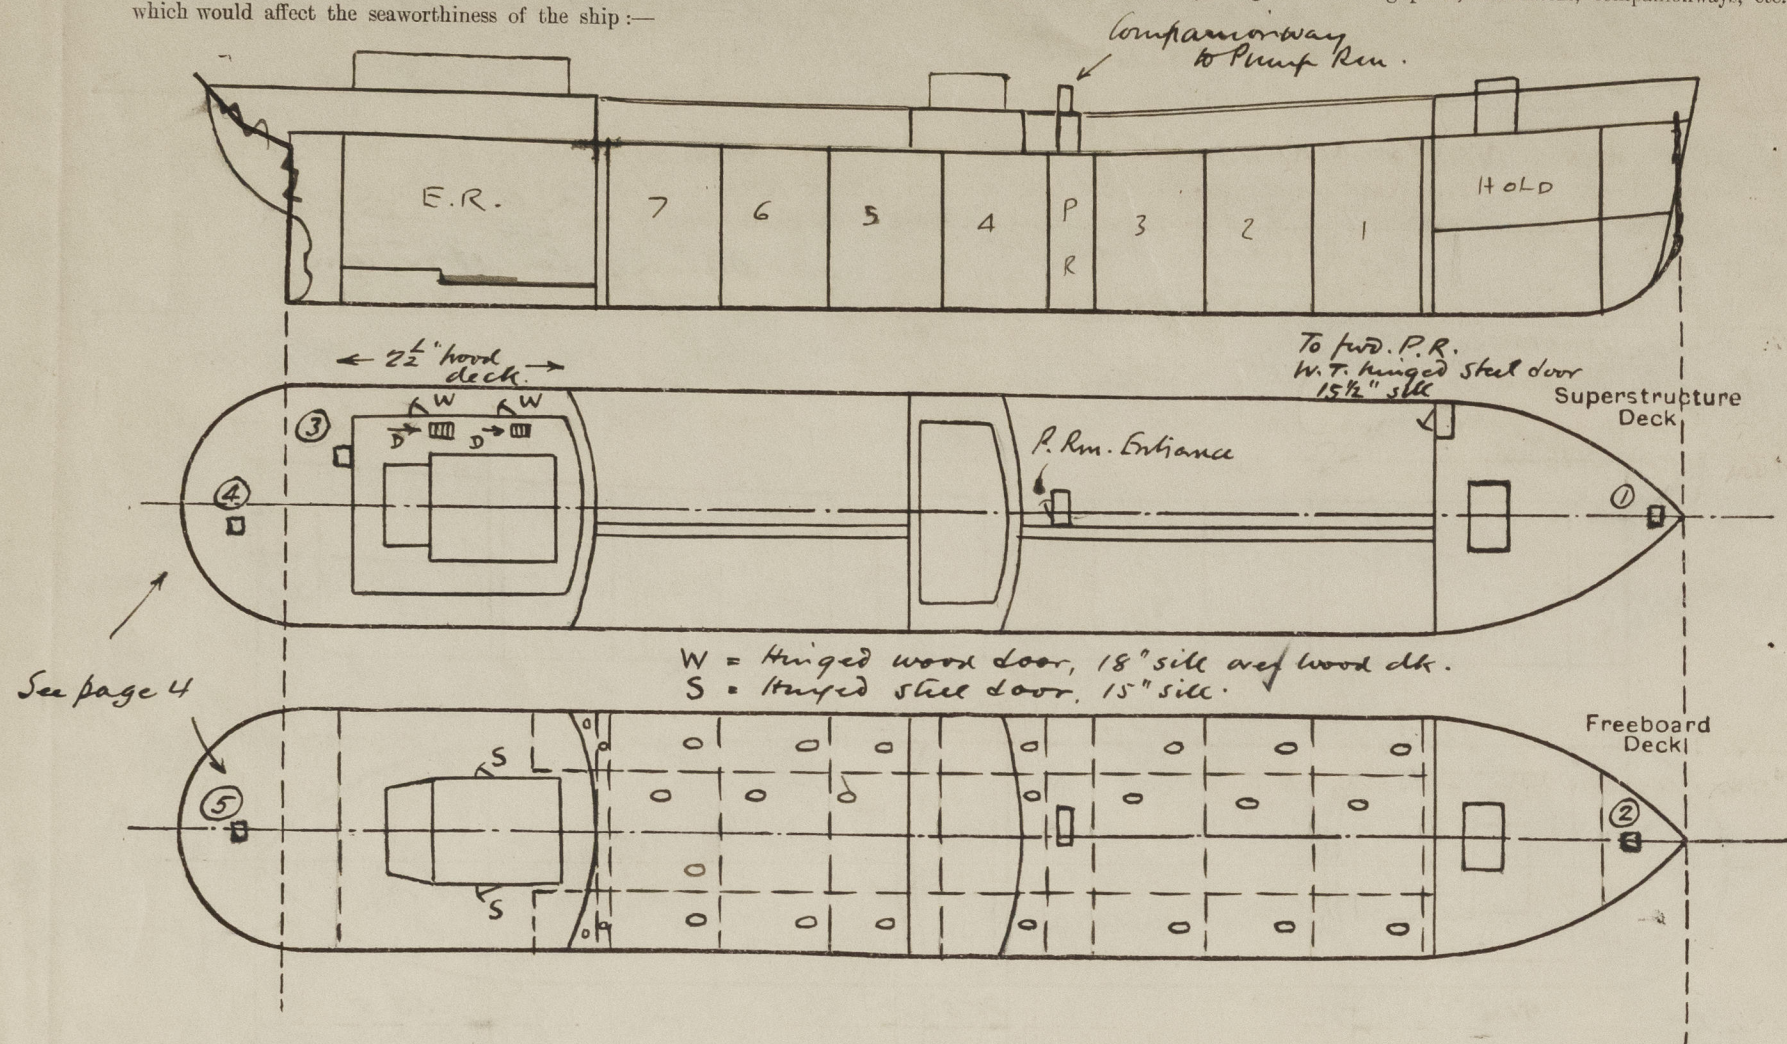 which would affect the seaworthiness of the ship :—
Companionway
to Pump Rm.
E.R.
7
6
5
4
P
R
3
2
1
HOLD
← 2½" wood →
deck.
To fwd. P.R.
W.T. hinged steel door
15½" sill
Superstructure
Deck
W W
D D
3
4
P. Rm. Entrance
1
W = Hinged wood door, 18" sill over wood dk.
S = Hinged steel door, 15" sill.
See page 4
Freeboard
Deck
S
5
2
S